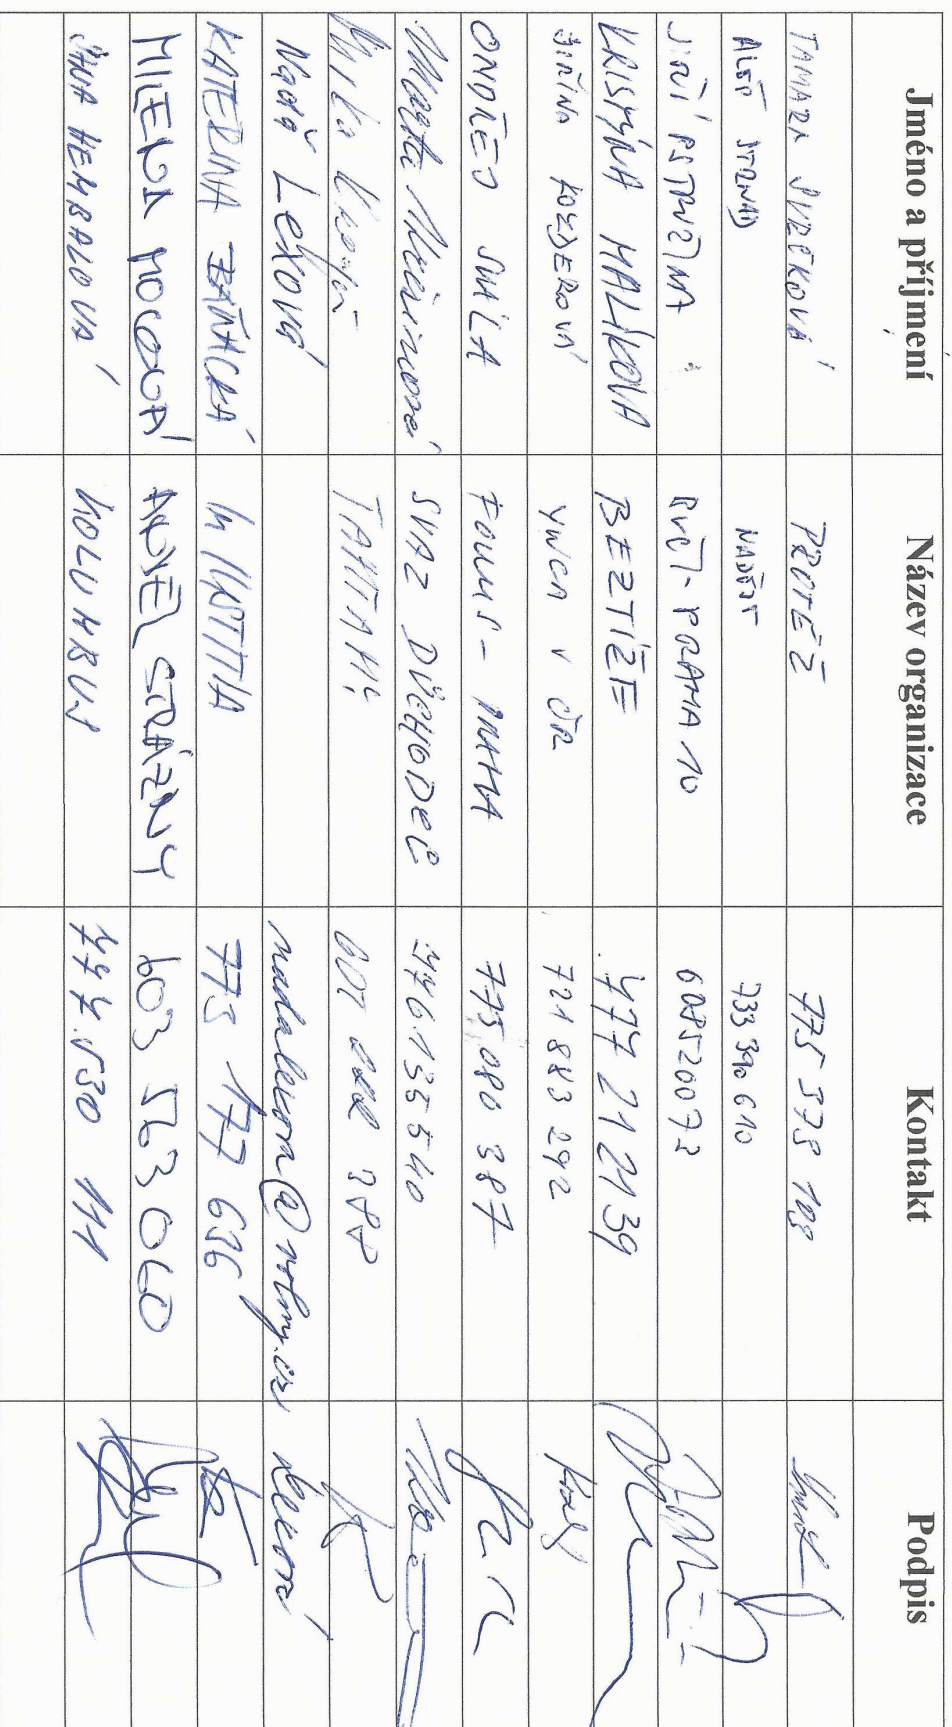 Jméno a příjmení Název organizace Kontakt Podpis
TAMARA PROTĚŽ 775 378 108
ALEŠ STRNAD NADĚJE 733 390 610
JIŘÍ PSTRUŽINA RVČT - PRAHA 10 608520073
KRISTÝNA MALÍKOVÁ BEZTÍŽE 777 21 21 39
JIŘINA YMCA V ČR 721 883 292
ONDŘEJ SMÍLA FOKUS - PRAHA 775 080 387
Marta SVAZ DŮCHODCŮ 776135540
Mirka TAMTAMŮ
Naďa Lexová nadalexova@volny.cz Lexová
KATEŘINA IN IUSTITIA 773 177 636
MILENA MOCOVÁ ANDĚL STRÁŽNÝ 603 563 060
JANA HEMBALOVÁ KOLUMBUS 777 530 111